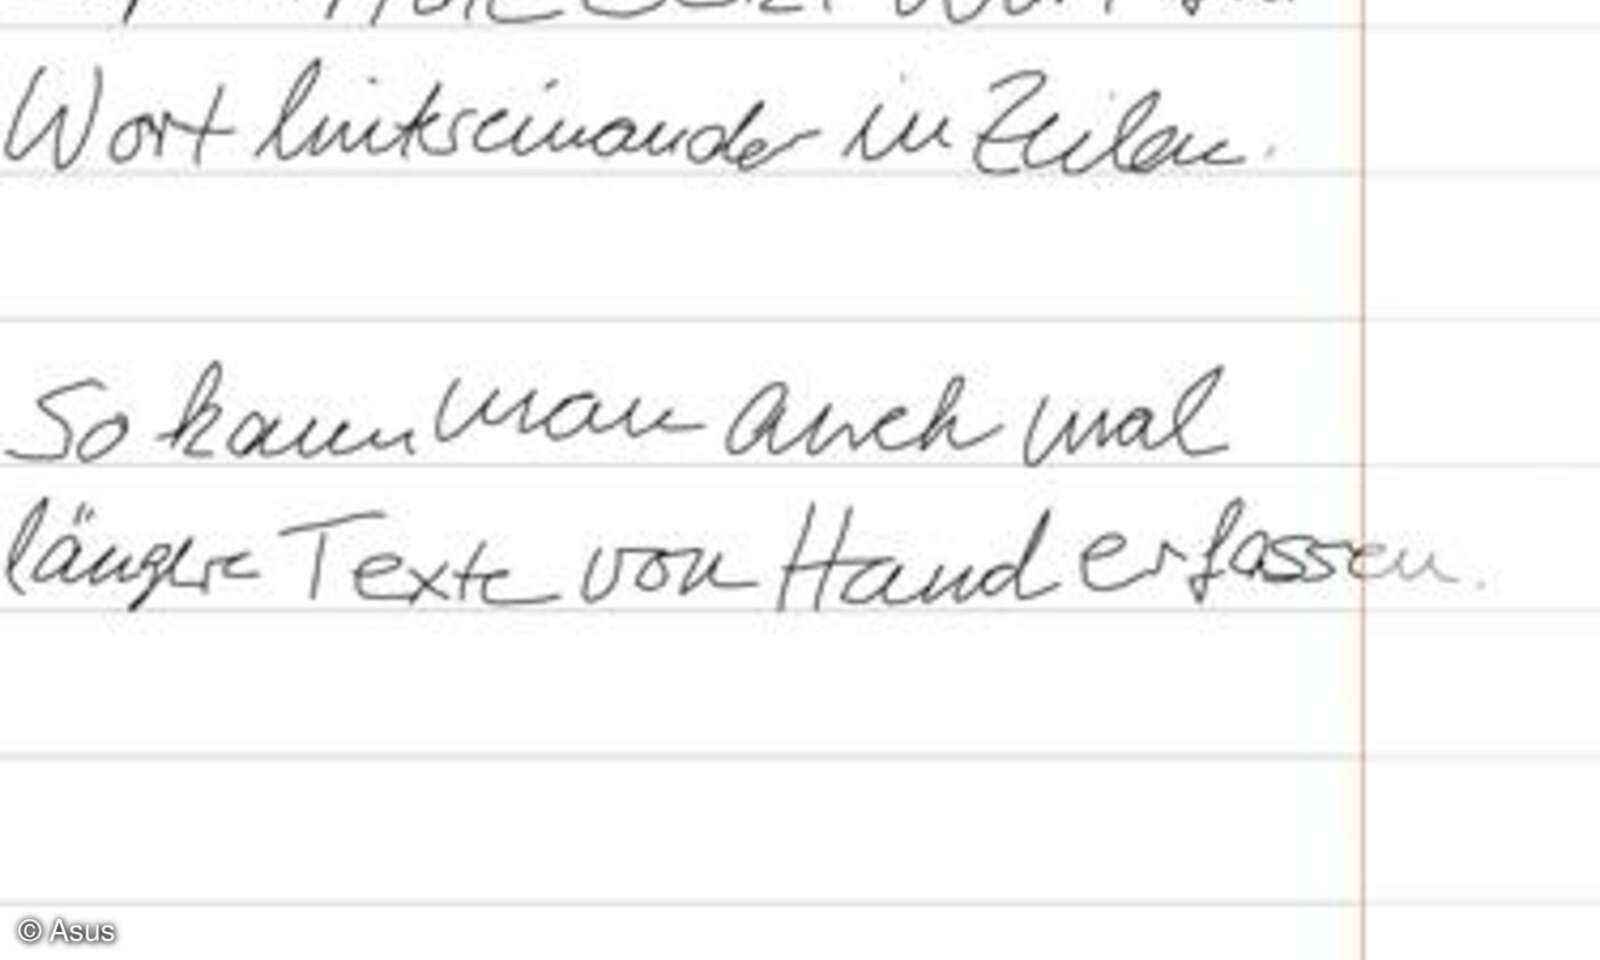 Wort
Wort hintereinander in Zeilen.
So kann man auch mal
längere Texte von Hand erfassen.
© Asus